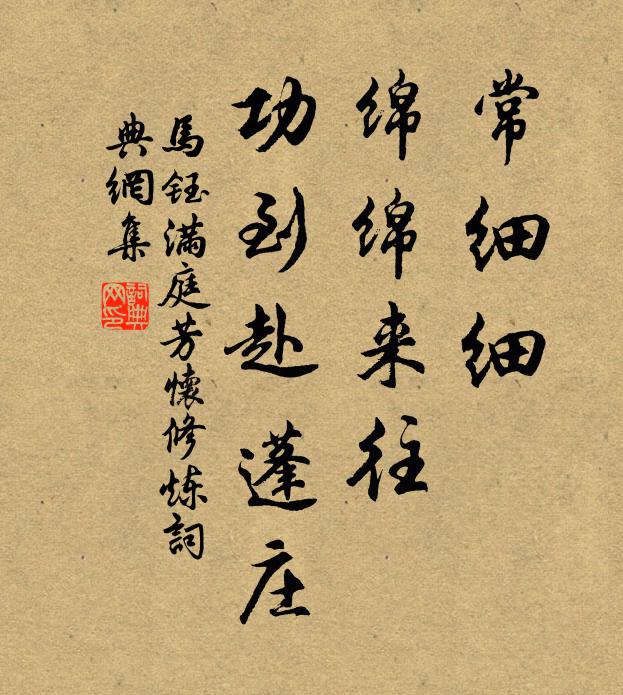 常细细
绵绵来往
功到赴蓬庄
馬鈺满庭芳懷修炼詞
典網集
詞典网印